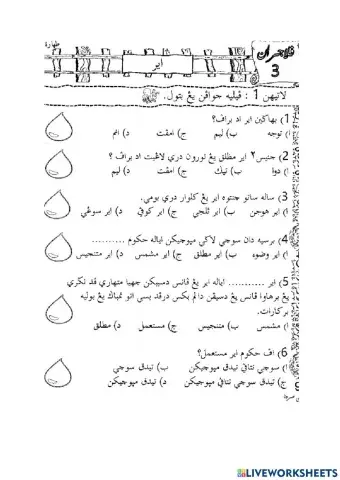 طهارة
ڤلاجرن
3
اير
لاتيهن 1 : ڤيليه جواڤن يڠ بتول.
1) بهاڬين اير اد براڤ؟
ا) توجه ب) ليم ج) امڤت د) انم
2) جنيس٢ اير مطلق يڠ تورون دري لاڠيت اد براڤ ؟
ا) دوا ب) تيڬ ج) امڤت د) ليم
3) ساله ساتو چنتوه اير يڠ كلوار دري بومي.
ا) اير هوجن ب) اير ثلجي ج) اير كوڤي د) اير سوڠي
4) برسيه دان سوچي لاڬي مڽوچيكن اياله حكوم ..........
ا) اير وضوء ب) اير مطلق ج) اير مشمس د) اير متنجيس
5) اير .......... اياله اير يڠ ڤانس دسببكن چهيا متهاري ڤد نڬري
يڠ برهاوا ڤانس يڠ دسيمڤن دالم بكس درڤد بسي اتو تمباڬ يڠ بوليه
بركارات.
ا) مشمس ب) متنجيس ج) مستعمل د) مطلق
6) اڤ حكوم اير مستعمل؟
ا) سوچي تتاڤي تيدق مڽوچيكن ب) تيدق سوچي
ج) تيدق سوچي تتاڤي مڽوچيكن د) تيدق مڽوچيكن
LIVEWORKSHEETS